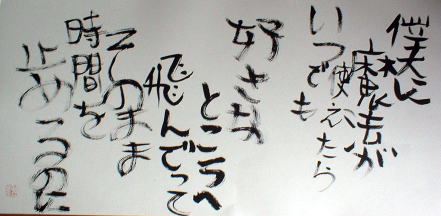 僕に
魔法が
使えたら
いつでも
好きな
ところへ
飛んでって
そのまま
時間を
止めるのに